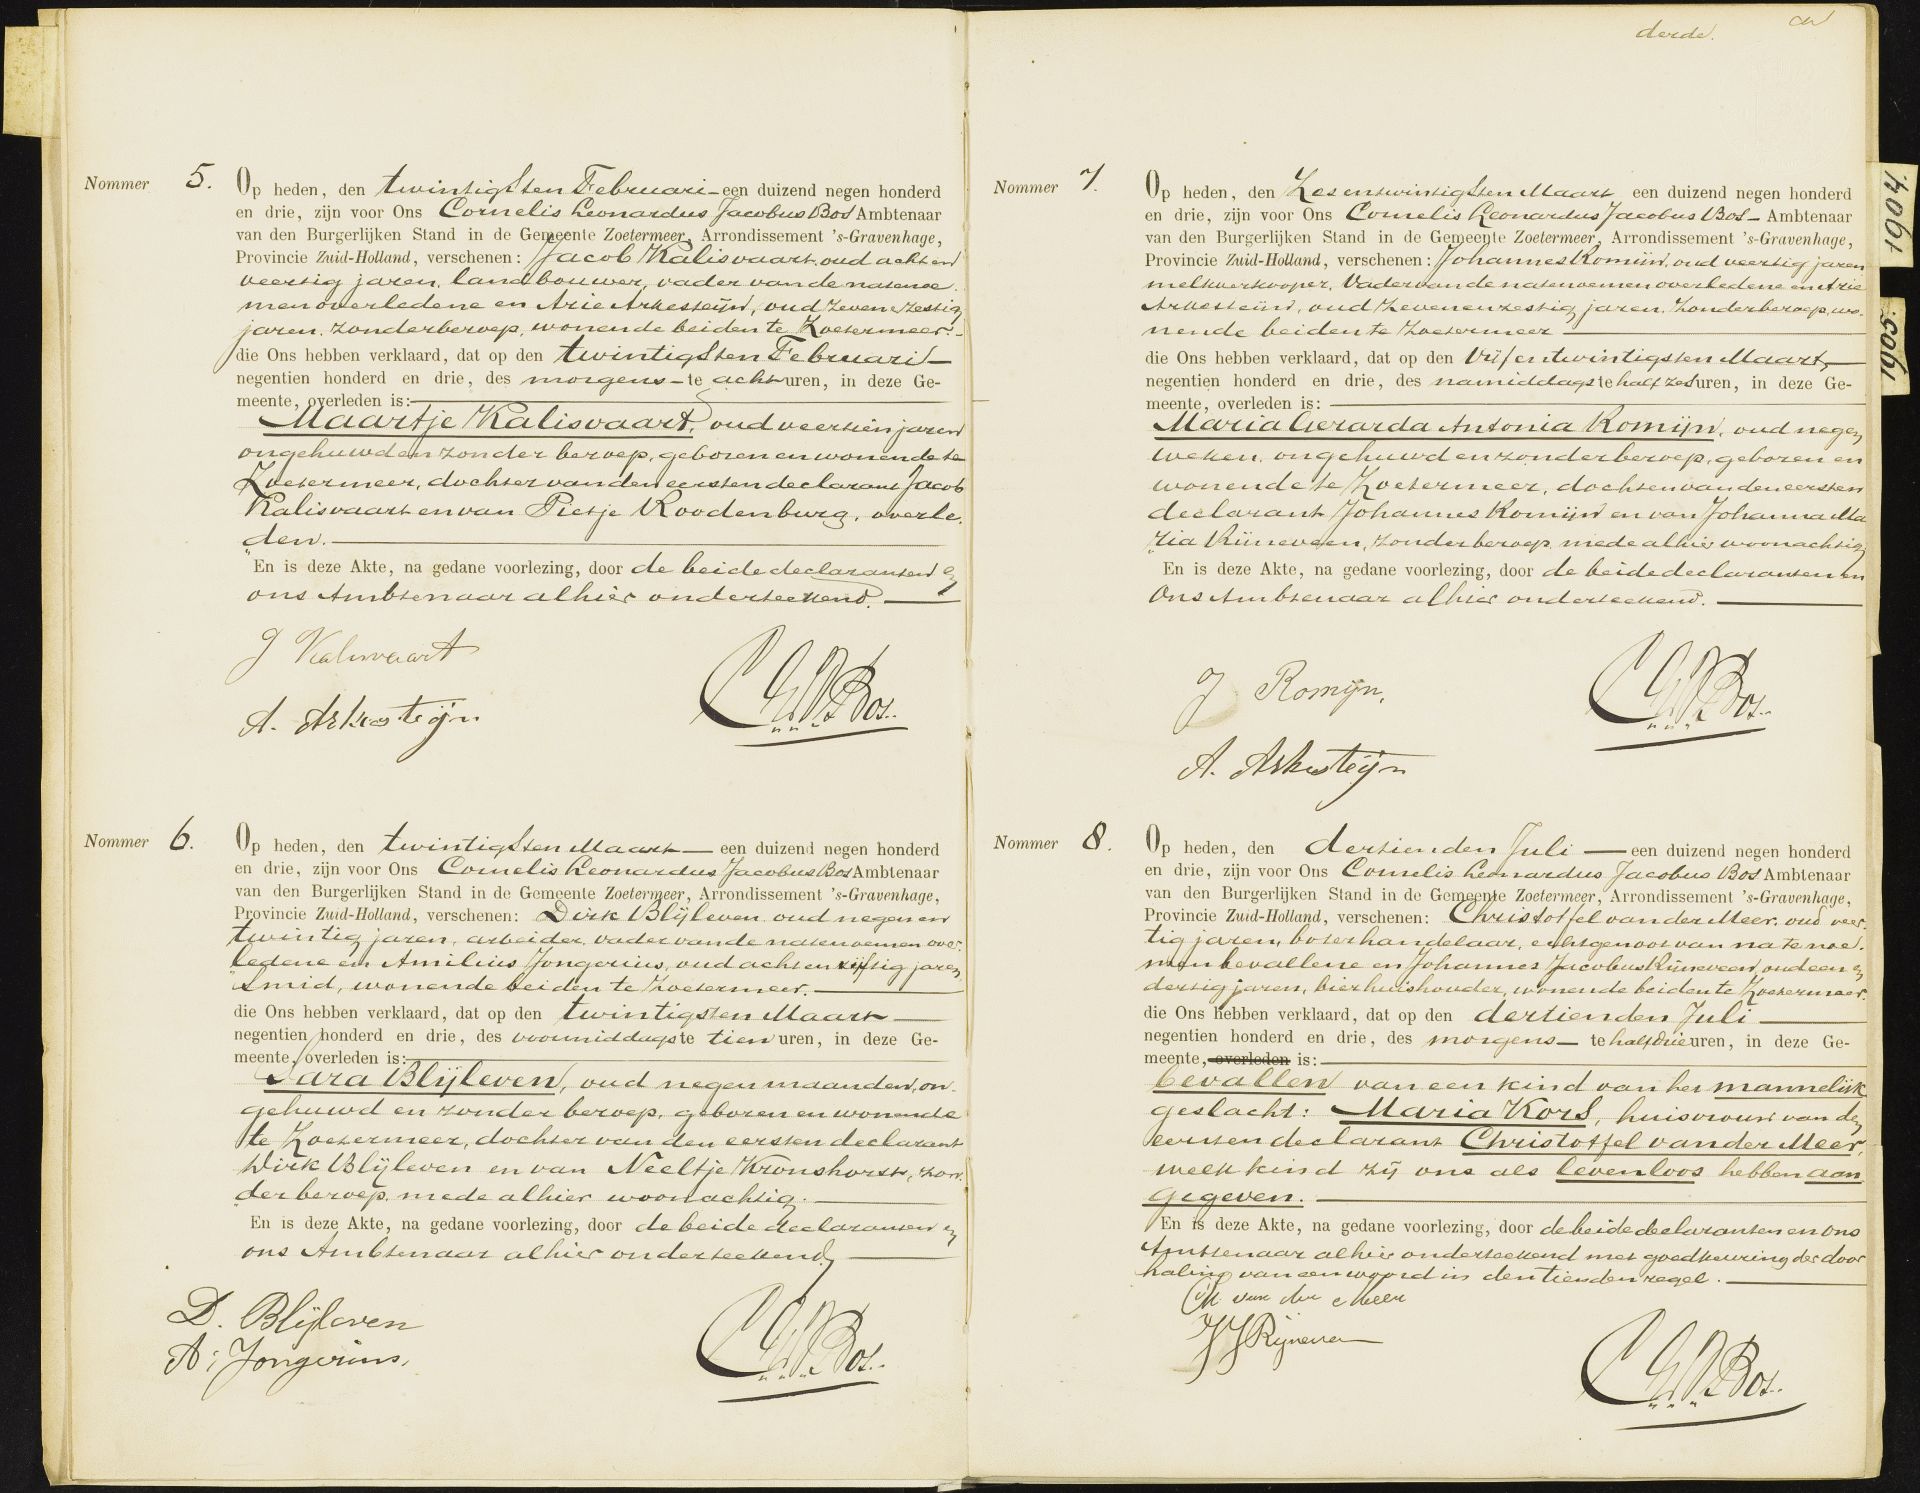 derde.
Nommer 5. Op heden, den twintigsten Februari – een duizend negen honderd
en drie, zijn voor Ons Cornelis Leonardus Jacobus Bos Ambtenaar
van den Burgerlijken Stand in de Gemeente Zoetermeer, Arrondissement 's-Gravenhage,
Provincie Zuid-Holland, verschenen: Jacob Kalisvaart, oud acht en
veertig jaren, landbouwer, vader van de natenoe-
men overledene en Arie Arkesteijn, oud zeven en zestig
jaren, zonder beroep, wonende beiden te Zoetermeer. –
die Ons hebben verklaard, dat op den twintigsten Februari –
negentien honderd en drie, des morgens – te acht uren, in deze Ge-
meente, overleden is:
Maartje Kalisvaart, oud veertien jaren
ongehuwd en zonder beroep, geboren en wonende te
Zoetermeer, dochter van den eersten declarant Jacob
Kalisvaart en van Pietje Roodenburg, overle-
"den.
En is deze Akte, na gedane voorlezing, door de beide declaranten en
ons Ambtenaar alhier onderteekend.
J Kalisvaart
A. Arkesteijn
CLJBos..
Nommer 6. Op heden, den twintigsten Maart — een duizend negen honderd
en drie, zijn voor Ons Cornelis Leonardus Jacobus Bos Ambtenaar
van den Burgerlijken Stand in de Gemeente Zoetermeer, Arrondissement 's-Gravenhage,
Provincie Zuid-Holland, verschenen: Dirk Blijleven oud negen en
twintig jaren, arbeider, vader van de natenoemen over-
"ledene en Amilius Jongerius, oud acht en vijftig jaren,
smid, wonende beiden te Zoetermeer.
die Ons hebben verklaard, dat op den twintigsten Maart —
negentien honderd en drie, des voormiddags te tien uren, in deze Ge-
meente, overleden is:
Sara Blijleven, oud negen maanden, on-
gehuwd en zonder beroep, geboren en wonende
te Zoetermeer, dochter van den eersten declarant
Dirk Blijleven en van Neeltje Kronshorst, zon-
"der beroep, mede alhier woonachtig.
En is deze Akte, na gedane voorlezing, door de beide declaranten en
ons Ambtenaar alhier onderteekend,
D. Blijleven
A. Jongerius,
CLJBos..
Nommer 7. Op heden, den Zes en twintigsten Maart een duizend negen honderd
en drie, zijn voor Ons Cornelis Leonardus Jacobus Bos – Ambtenaar
van den Burgerlijken Stand in de Gemeente Zoetermeer, Arrondissement 's-Gravenhage,
Provincie Zuid-Holland, verschenen: Johannes Romijn, oud veertig jaren
melkverkooper, Vader van de natenoemen overledene en Arie
Arkesteijn, oud zeven en zestig jaren, zonder beroep, wo-
nende beiden te Zoetermeer
die Ons hebben verklaard, dat op den Vijf en twintigsten Maart, –
negentien honderd en drie, des namiddags te half zes uren, in deze Ge-
meente, overleden is:
Maria Gerarda Antonia Romijn, oud negen
weken, ongehuwd en zonder beroep, geboren en
wonende te Zoetermeer, dochter van den eersten
declarant Johannes Romijn en van Johanna Ma
"ria Rijneveen, zonder beroep mede alhier woonachtig
En is deze Akte, na gedane voorlezing, door de beide declaranten en
Ons Ambtenaar alhier onderteekend.
J Romijn,
A. Arkesteijn
CLJBos..
Nommer 8. Op heden, den dertienden Juli — een duizend negen honderd
en drie, zijn voor Ons Cornelis Leonardus Jacobus Bos Ambtenaar
van den Burgerlijken Stand in de Gemeente Zoetermeer, Arrondissement 's-Gravenhage,
Provincie Zuid-Holland, verschenen: Christoffel van der Meer, oud veer-
tig jaren, boterhandelaar, echtgenoot van na te noe-
men bevallene en Johannes Jacobus Rijneveen, oud een en
dertig jaren, bierhuishouder, wonende beiden te Zoetermeer.
die Ons hebben verklaard, dat op den dertienden Juli
negentien honderd en drie, des morgens — te half drie uren, in deze Ge-
meente, overleden is:
bevallen van een kind van het mannelijk
geslacht: Maria Kors, huisvrouw van den
eersten declarant Christoffel van der Meer,
welk kind zij ons als levenloos hebben aan
gegeven.
En is deze Akte, na gedane voorlezing, door de beide declaranten en ons
Ambtenaar alhier onderteekend met goedkeuring der door
haling van een woord in den tienden regel.
Ch van der Meer
JJRijneveen
CLJBos..
1904
1905.